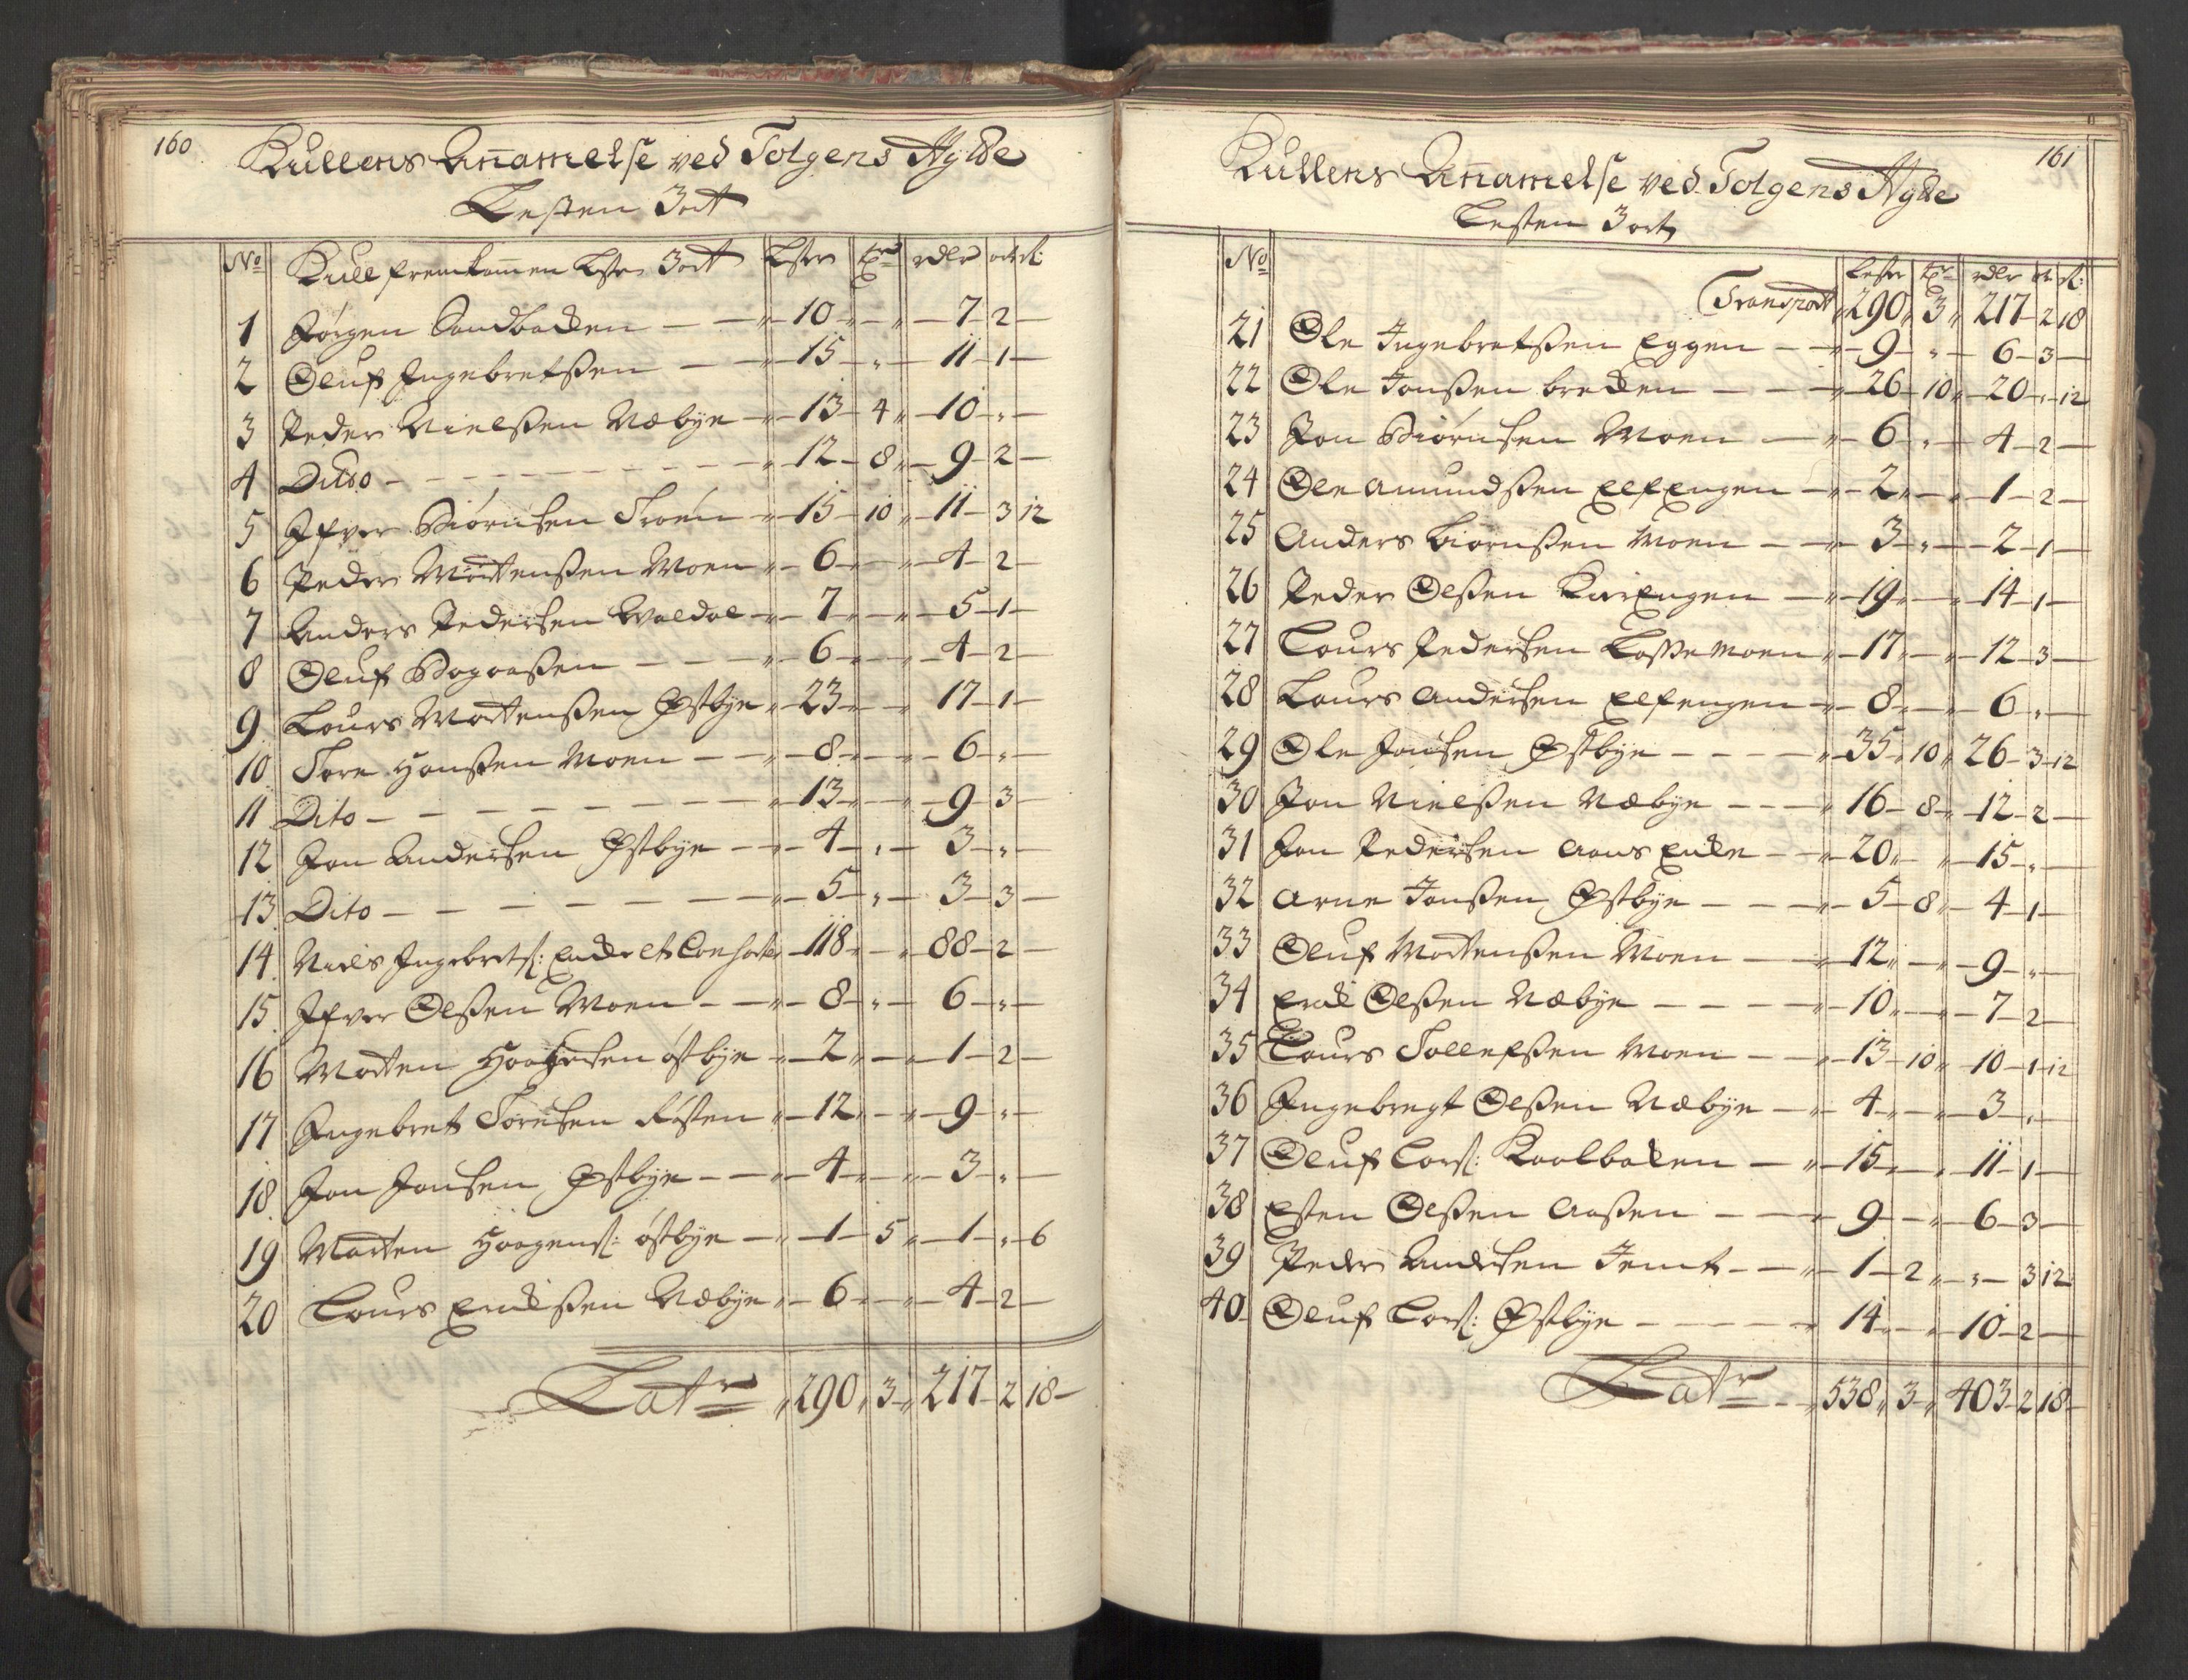 160
Kullens Anamelse ved Tolgens Hytte
Lesten 3 ort
No Kull fremkommen Lester 3 ort Lester tr rdlr ort sk:
1 Jørgen Sandbacken — 10 — 7 2 —
2 Oluf Ingebretsen — 15 — 11 1 —
3 Peder Nielsen Næbye — 13 4 10 —
4 Ditto — 12 8 9 2 —
5 Ifver Biørnsen Troen — 15 10 11 3 12
6 Peder Mortensen Moen — 6 — 4 2 —
7 Anders Pedersen Waldal — 7 — 5 1 —
8 Oluf Bogoasen — 6 — 4 2 —
9 Lours Mortensen Østbye — 23 — 17 1 —
10 Tore Hansen Moen — 8 — 6 —
11 Dito — 13 — 9 3 —
12 Jon Andersen Østbye — 4 — 3 —
13 Dito — 5 — 3 3 —
14 Niels Ingebrets: — 118 — 88 2 —
15 Ifver Olsen Moen — 8 — 6 —
16 Morten østbye — 2 — 1 2 —
17 Ingebret Toresen Røsten — 12 — 9 —
18 Jon Jonsen Østbye — 4 — 3 —
19 Morten Haagens: østbye — 1 5 1 — 6
20 Lours Ericksen Næbye — 6 — 4 2 —
Latr 290 3 217 2 18
161
Kullens Anamelse ved Tolgens Hytte
Lesten 3 ort
No Lester tr rdlr ort sk:
Transport 290 3 217 2 18
21 Ole Ingebretsen Eggen — 9 — 6 3 —
22 Ole Jonsen brecken — 26 10 20 — 12
23 Jon Biørnsen Moen — 6 — 4 2 —
24 Ole Amundsen Elfengen — 2 — 1 2 —
25 Anders Biørnsen Moen — 3 — 2 1 —
26 Peder Olsen Kirengen — 19 — 14 1 —
27 Lours Pedersen Lossemoen — 17 — 12 3 —
28 Lours Andersen Elfengen — 8 — 6 —
29 Ole Jonsen Østbye — 35 10 26 3 12
30 Jon Nielsen Næbye — 16 8 12 2 —
31 Jon Pedersen — 20 — 15 —
32 Arne Jonsen Østbye — 5 8 4 1 —
33 Oluf Mortensen Moen — 12 — 9 —
34 Erick Olsen Næbye — 10 — 7 2 —
35 Lours Tollefsen Moen — 13 10 10 1 12
36 Ingebregt Olsen Næbye — 4 — 3 —
37 Oluf Lars: Koolbacken — 15 — 11 1 —
38 Esten Olsen Aasen — 9 — 6 3 —
39 Peder Andersen Jemt — 1 2 — 3 12
40 Oluf Lars: Østbye — 14 — 10 2 —
Latr 538 3 403 2 18